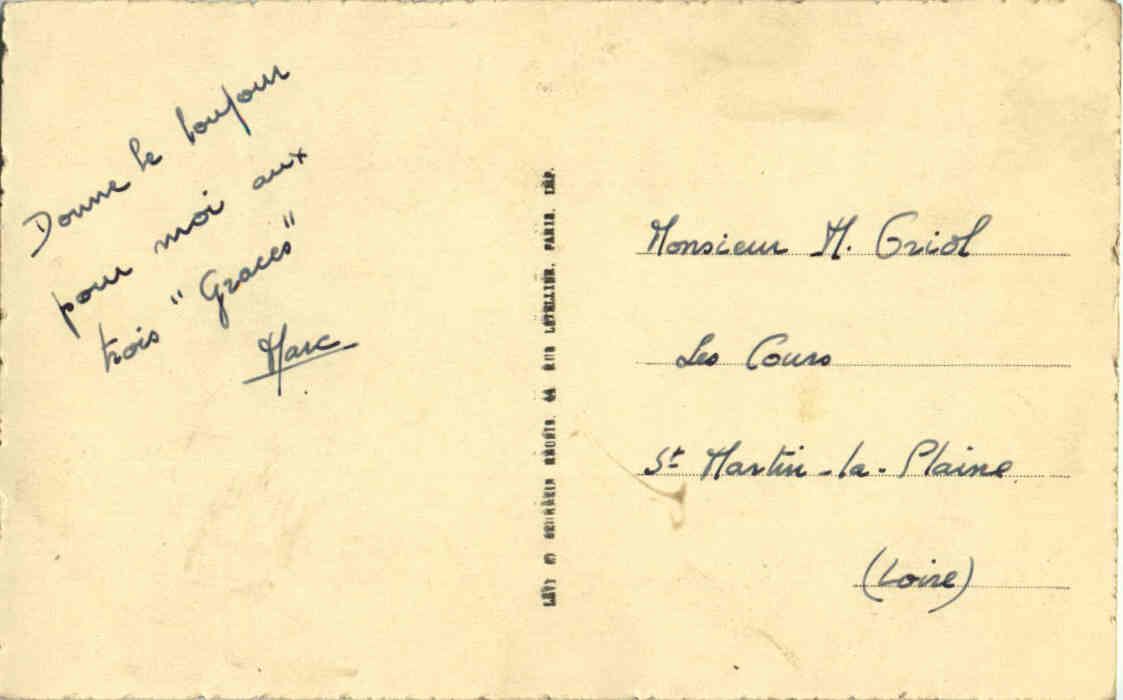 Donne le bonjour
pour moi aux
trois "Graces"
Marc
LÉVY ET NEURDEIN RÉUNIS. 44 RUE LETELLIER. PARIS. IMP.
Monsieur M. Griol
Les Cours
St Martin-la-Plaine
(Loire)